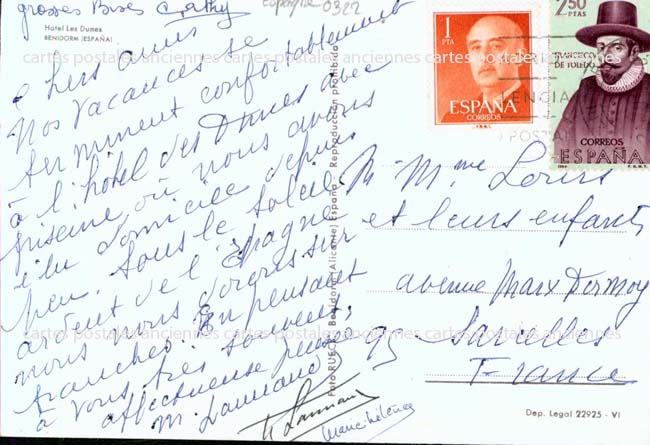 grosses Bises Cathy
espagne 0322
Hotel Les Dunes
BENIDORM (ESPAÑA)
Chers amis
Nos vacances se
terminent confortablement
à l'hôtel des Dunes avec
piscine où nous avons
élu domicile depuis
peu. Sous le soleil
ardent de l'Espagne
nous nous dorons sur
tranches. En pensant
à vous très souvent,
affectueuses
M.
Marie hélène
Foto RUECK - Benidorm (Alicante) España - Reproducción prohibida
1
PTA
ESPAÑA
CORREOS
2'50
PTAS
FRANCISCO
DE TOLEDO
CORREOS
ESPAÑA
M. Mme Louis
et leurs enfants
avenue Marx Dormoy
95 Sarcelles
France
Dep. Legal 22925 - VI
cartes postales anciennes cartes postales anciennes cartes postales anciennes
cartes postales anciennes cartes postales anciennes cartes postales anciennes